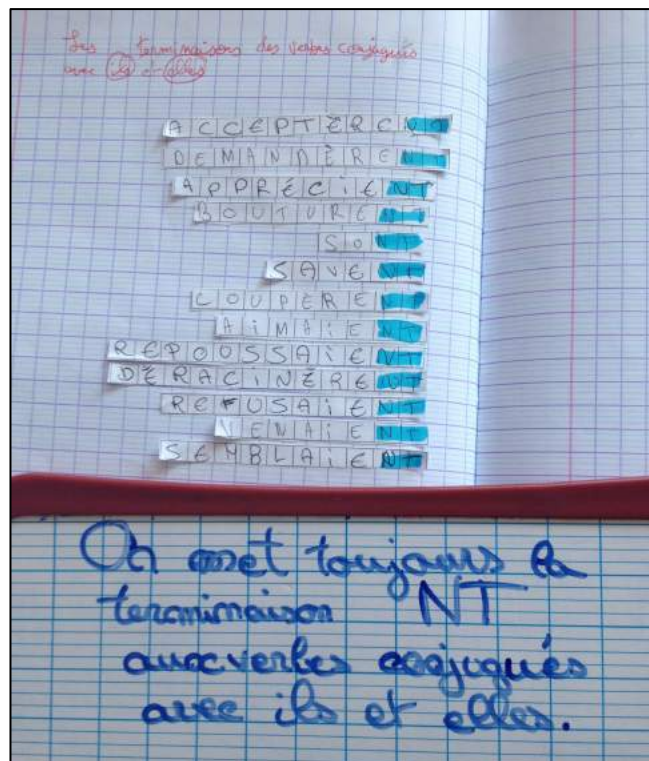 Les terminaisons des verbes conjugués
avec ils et elles
ACCEPTÈRENT
DEMANDÈRENT
APPRÉCIENT
BOUTURENT
SONT
SAVENT
COUPÈRENT
AIMAIENT
REPOUSSAIENT
DÉRACINÈRENT
REFUSAIENT
VENAIENT
SEMBLAIENT
On met toujours la
terminaison NT
aux verbes conjugués
avec ils et elles.